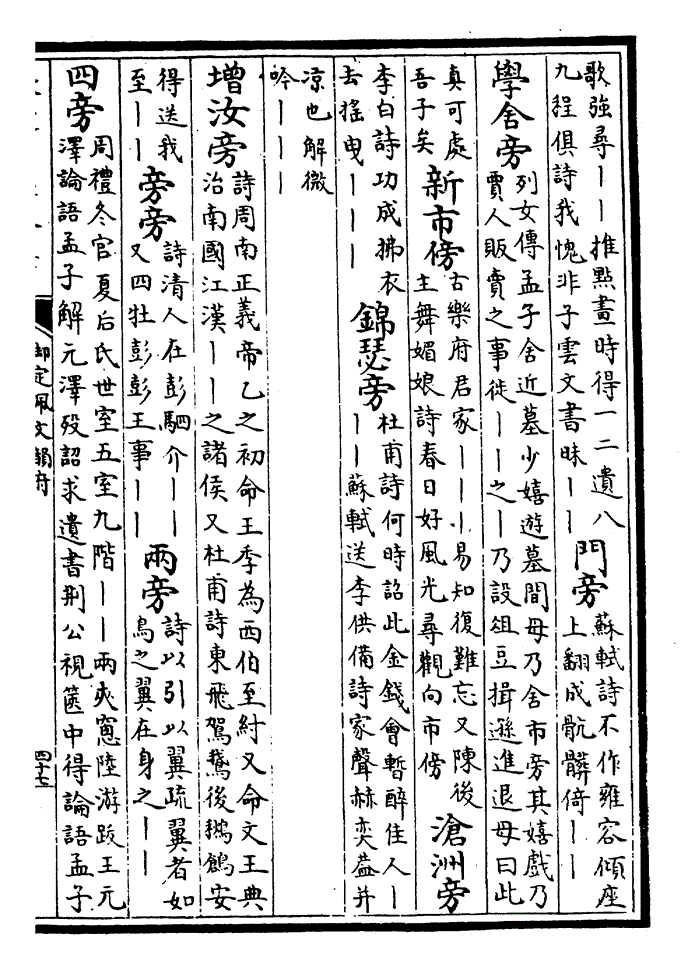 歌強尋丨丨推點畫時得一二遺八
九程俱詩我愧非子雲文書昧丨丨
門旁
蘇軾詩不作雍容傾座
上翻成骯髒倚丨丨
學舍旁
列女傳孟子舍近墓少嬉遊墓間母乃舍市旁其嬉戲乃
賈人販賣之事徙丨丨之丨乃設俎豆揖遜進退母曰此
真可處
吾子矣
新市傍
古樂府君家丨丨丨易知復難忘又陳後
主舞媚娘詩春日好風光尋觀向市傍
滄洲旁
李白詩功成拂衣
去搖曳丨丨丨
錦瑟旁
杜甫詩何時詔此金錢會暫醉佳人丨
丨丨蘇軾送李供備詩家聲赫奕葢并
涼也解微
吟丨丨丨
增汝旁
詩周南正義帝乙之初命王季為西伯至紂又命文王典
治南國江漢丨丨之諸侯又杜甫詩東飛駕鵝後鶖鶬安
得送我
至丨丨
旁旁
詩清人在彭駟介丨丨
又四牡彭彭王事丨丨
兩旁
詩以引以翼疏翼者如
鳥之翼在身之丨丨
四旁
周禮冬官夏后氏世室五室九階丨丨兩夾窻陸游跋王元
澤論語孟子解元澤歿詔求遺書荆公視篋中得論語孟子
御定佩文韻府
四十七